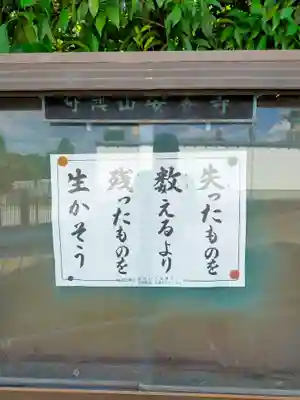 失ったものを
数えるより
残ったものを
生かそう